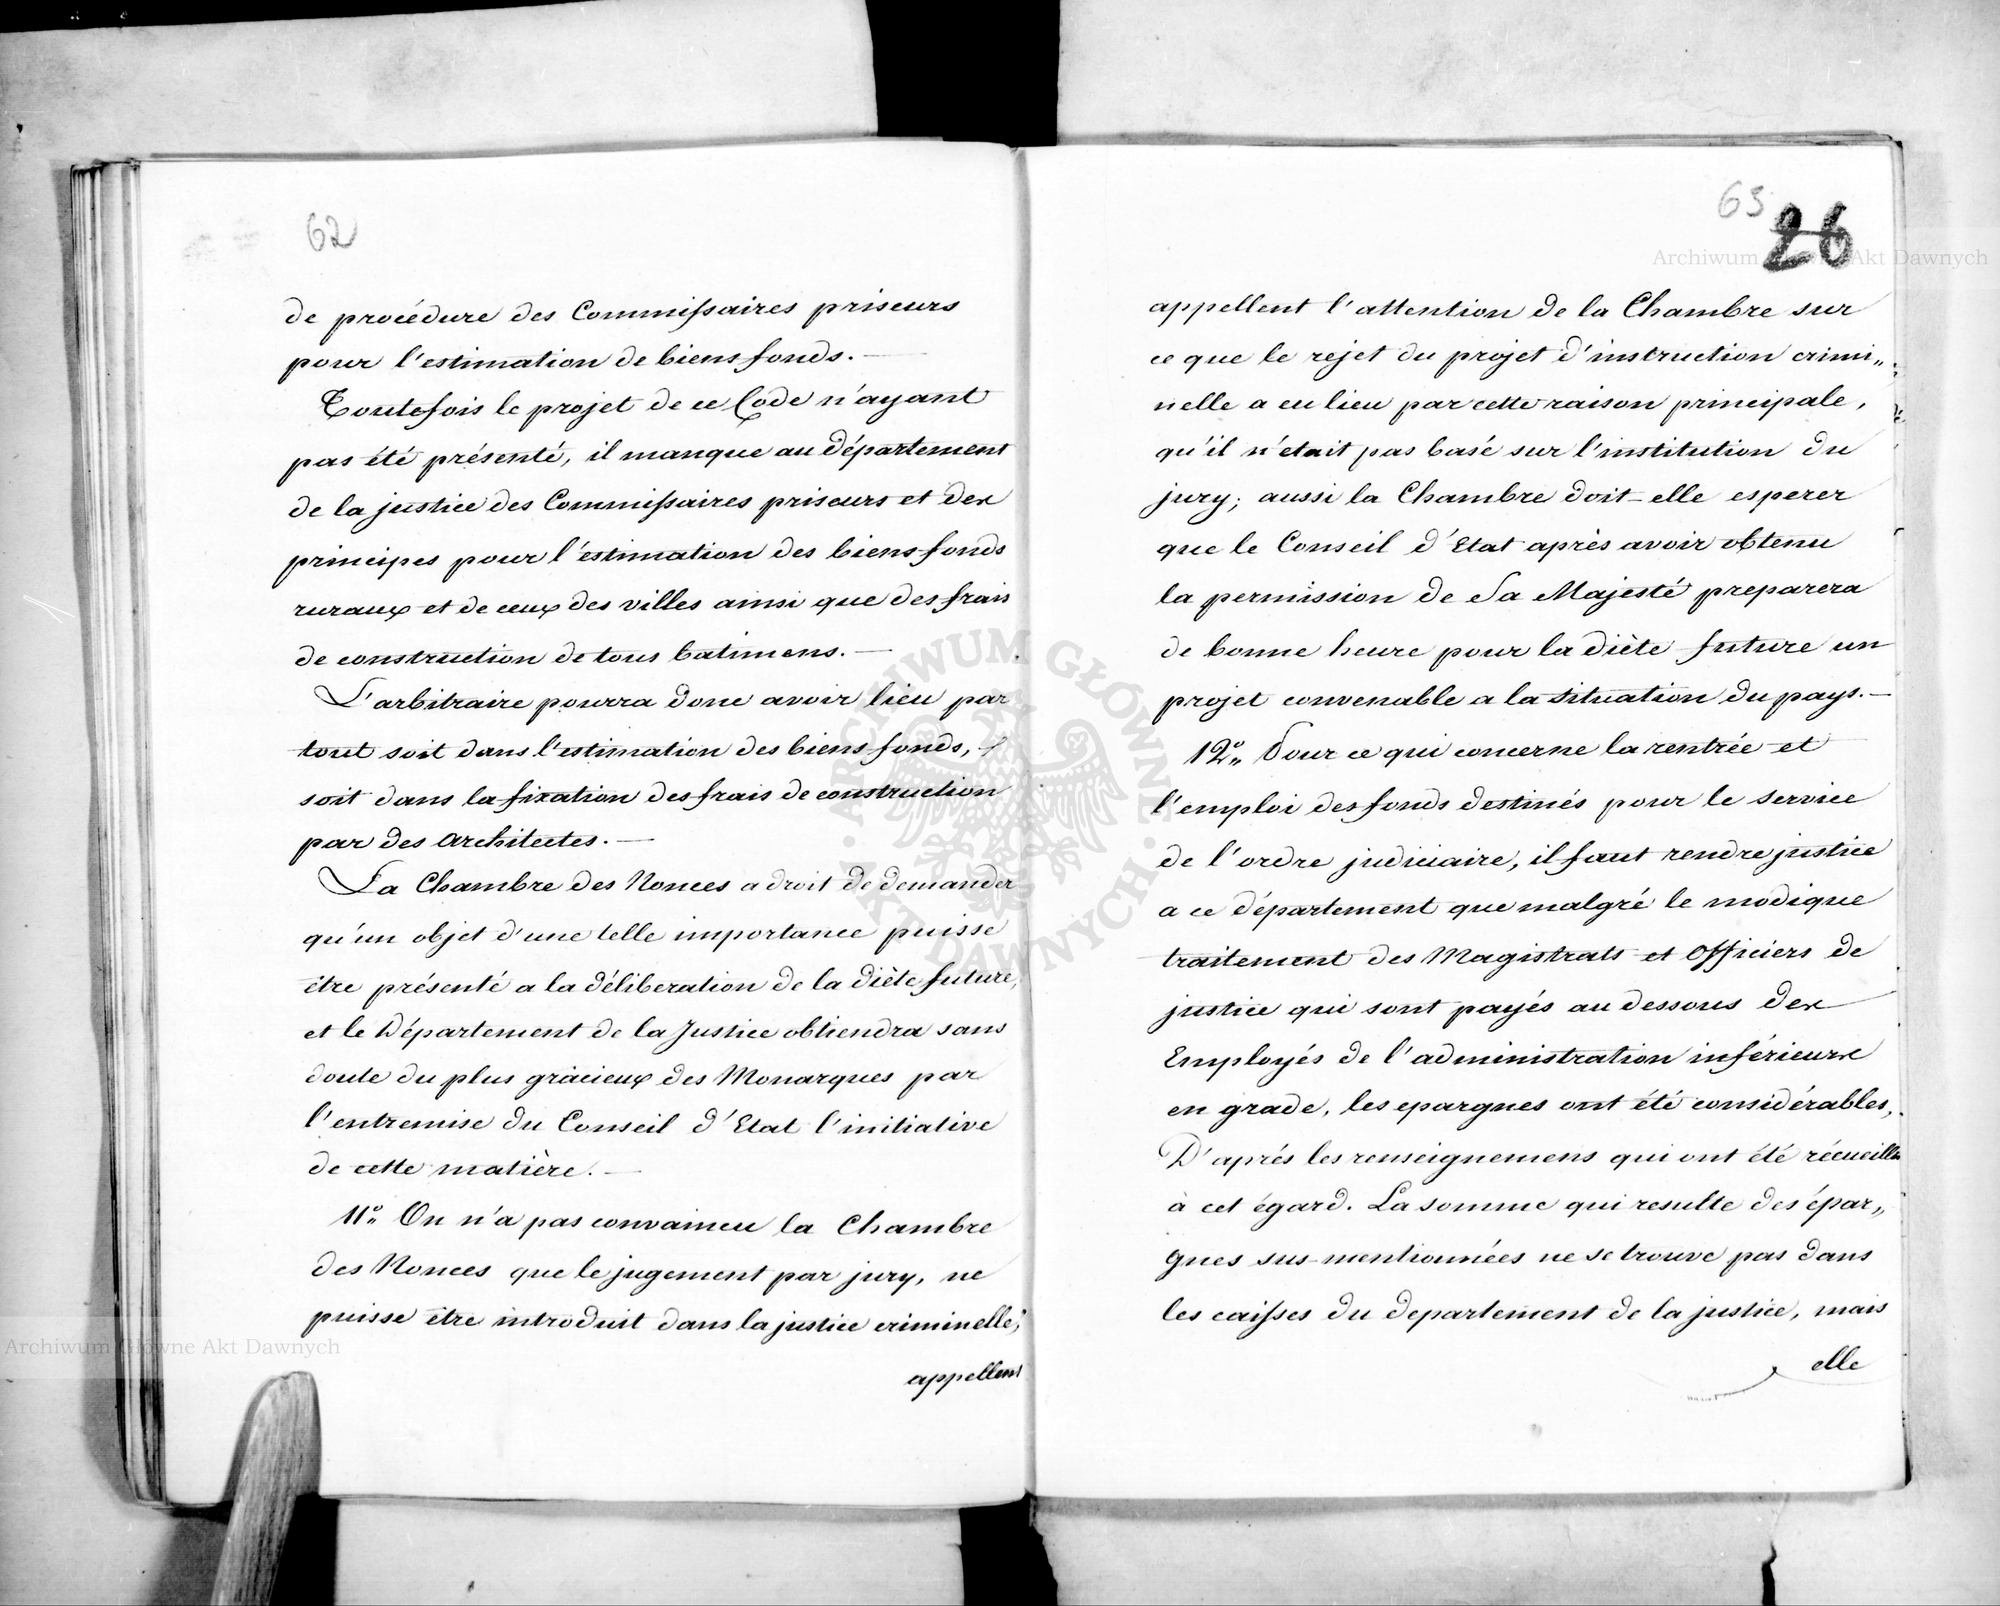 62
de procédure des Commissaires priseurs
pour l'estimation de biens fonds. —
Toutefois le projet de ce Code n'ayant
pas été présenté, il manque au département
de la justice des Commissaires priseurs et des
principes pour l'estimation des biens fonds
ruraux et de ceux des villes ainsi que des frais
de construction de tous batimens. —
L'arbitraire pourra donc avoir lieu par
tout soit dans l'estimation des biens fonds,
soit dans la fixation des frais de construction
par des architectes. —
La Chambre des Nonces a droit de demander
qu'un objet d'une telle importance puisse
être présenté a la déliberation de la diète future,
et le Département de la Justice obtiendra sans
doute du plus gràcieux des Monarques par
l'entremise du Conseil d'Etat l'initiative
de cette matière. —
11° On n'a pas convaincu la Chambre
des Nonces que le jugement par jury, ne
puisse être introduit dans la justice criminelle;
appellent
63
26
appellent l'attention de la Chambre sur
ce que le rejet du projet d'instruction crimi„
nelle a eu lieu par cette raison principale,
qu'il n'était pas basé sur l'institution du
jury; aussi la Chambre doit-elle esperer
que le Conseil d'Etat après avoir obtenu
la permission de Sa Majesté preparera
de bonne heure pour la diète future un
projet convenable a la situation du pays. —
12°„ Pour ce qui concerne la rentrée et
l'emploi des fonds destinés pour le service
de l'ordre judiciaire, il faut rendre justice
a ce département que malgré le modique
traitement des Magistrats et Officiers de
justice qui sont payés au dessous des
Employés de l'administration inférieurs
en grade, les epargnes ont été considérables,
D'aprés les renseignemens qui ont été récueillis
à cet égard. La somme qui resulte des épar„
gnes sus-mentionnées ne se trouve pas dans
les caisses du departement de la justice, mais
elle
Archiwum Główne Akt Dawnych
Archiwum Główne Akt Dawnych
ARCHIWUM GŁÓWNE AKT DAWNYCH